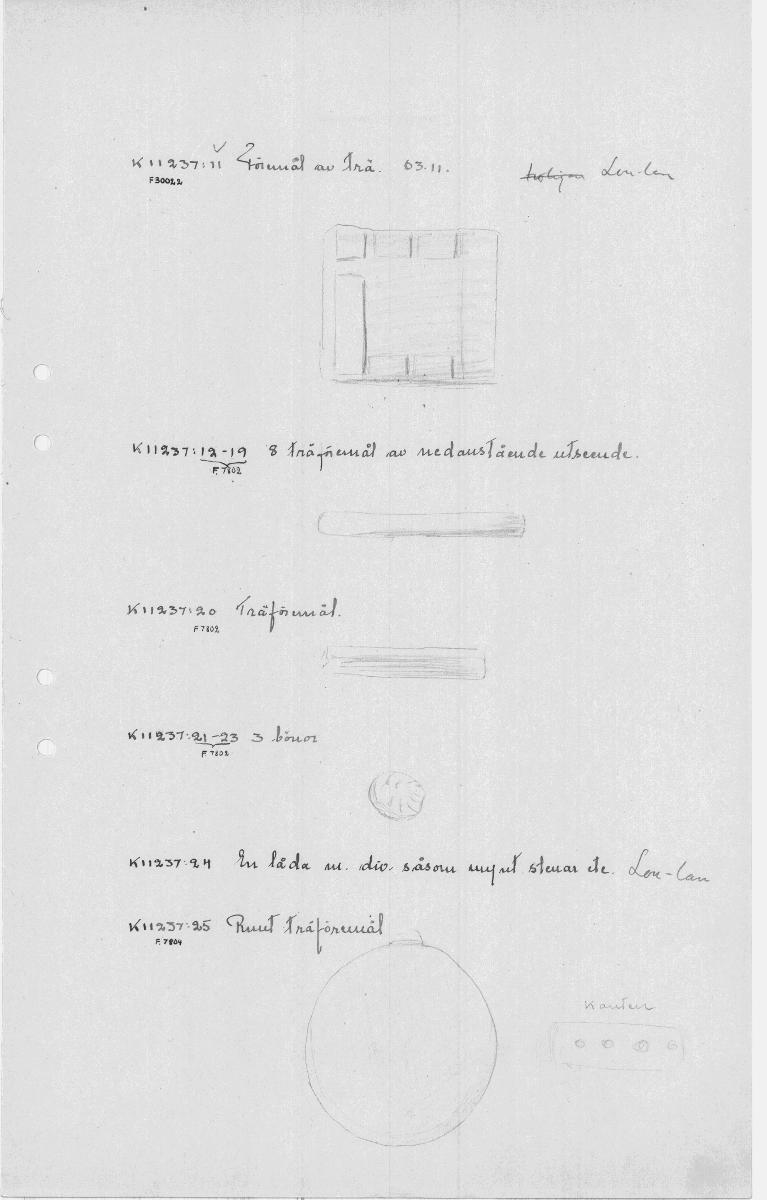 K11237:11 Föremål av trä. 63.11. Lou-lan
F30022
K11237:12-19 8 träföremål av nedanstående utseende.
F.7802
K11237:20 Träföremål.
F7802
K11237:21-23 3 bönor
F7802
K11237:24 En låda m. div. såsom mynt stenar etc. Lou-lan
K11237:25 Runt träföremål
F.7804
Kanten